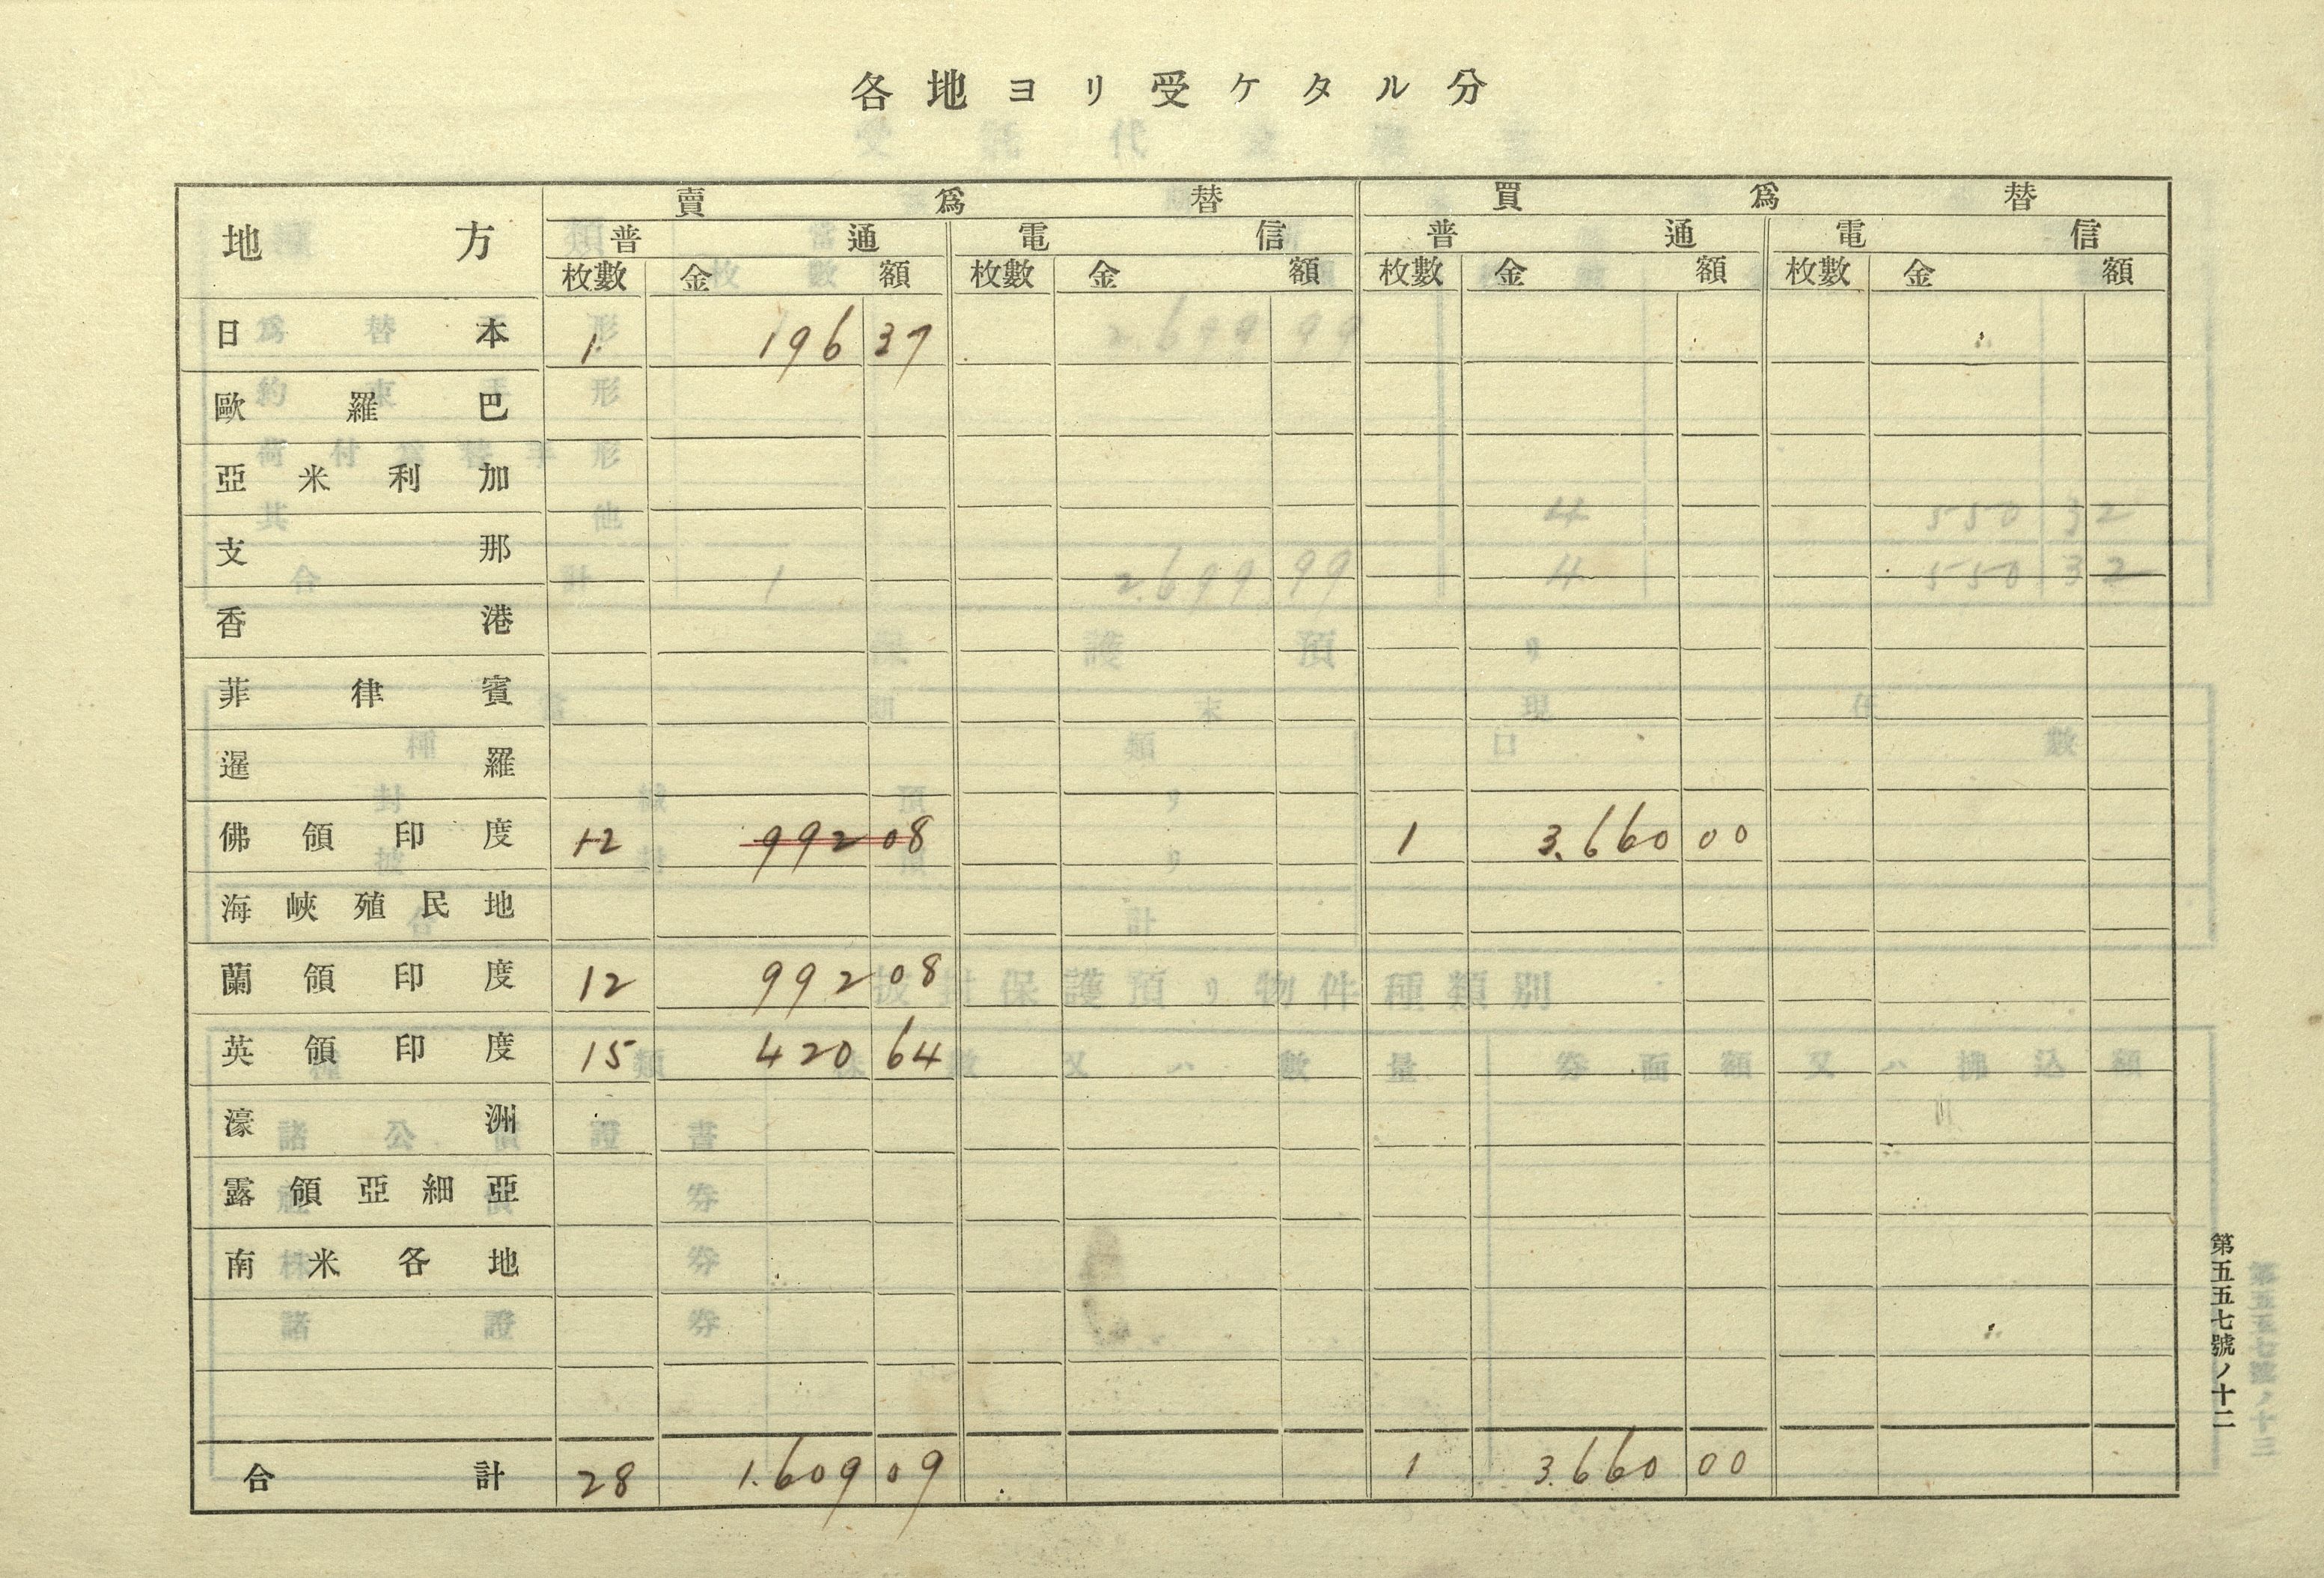 各地ヨリ受ケタル分
地方 賣爲替 買爲替
普通 電信 普通 電信
枚數 金額 枚數 金額 枚數 金額 枚數 金額
日本 1 196 37
歐羅巴
亞米利加
支那
香港
菲律賓
暹羅
佛領印度 12 992 08 1 3.660 00
海峽殖民地
蘭領印度 12 992 08
英領印度 15 420 64
濠洲
露領亞細亞
南米各地
合計 28 1.609 09 1 3.660 00
第五五七號ノ十二